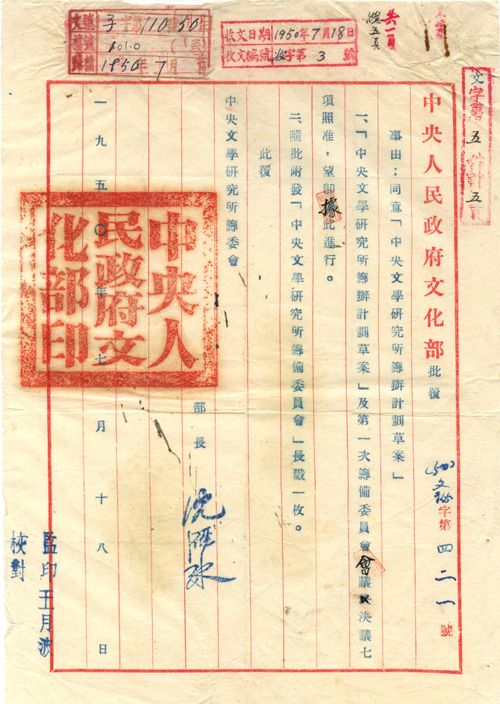 共一頁
總五頁
收文日期1950年7月18日
收文編號 收字第3號
文字第五件計五頁
1950年7月
中央人民政府文化部批覆
(50)文秘字第四二一號
事由：同意「中央文學研究所籌辦計劃草案」
一、「中央文學研究所籌辦計劃草案」及第一次籌備委員會會議決議七
項照准，望即據此進行。
二、隨批附發「中央文學研究所籌備委員會」長戳一枚。
此覆
中央文學研究所籌委會
部長 沈雁冰
一九五〇年七月十八日
中央人民政府文化部印
監印 王月波
校對